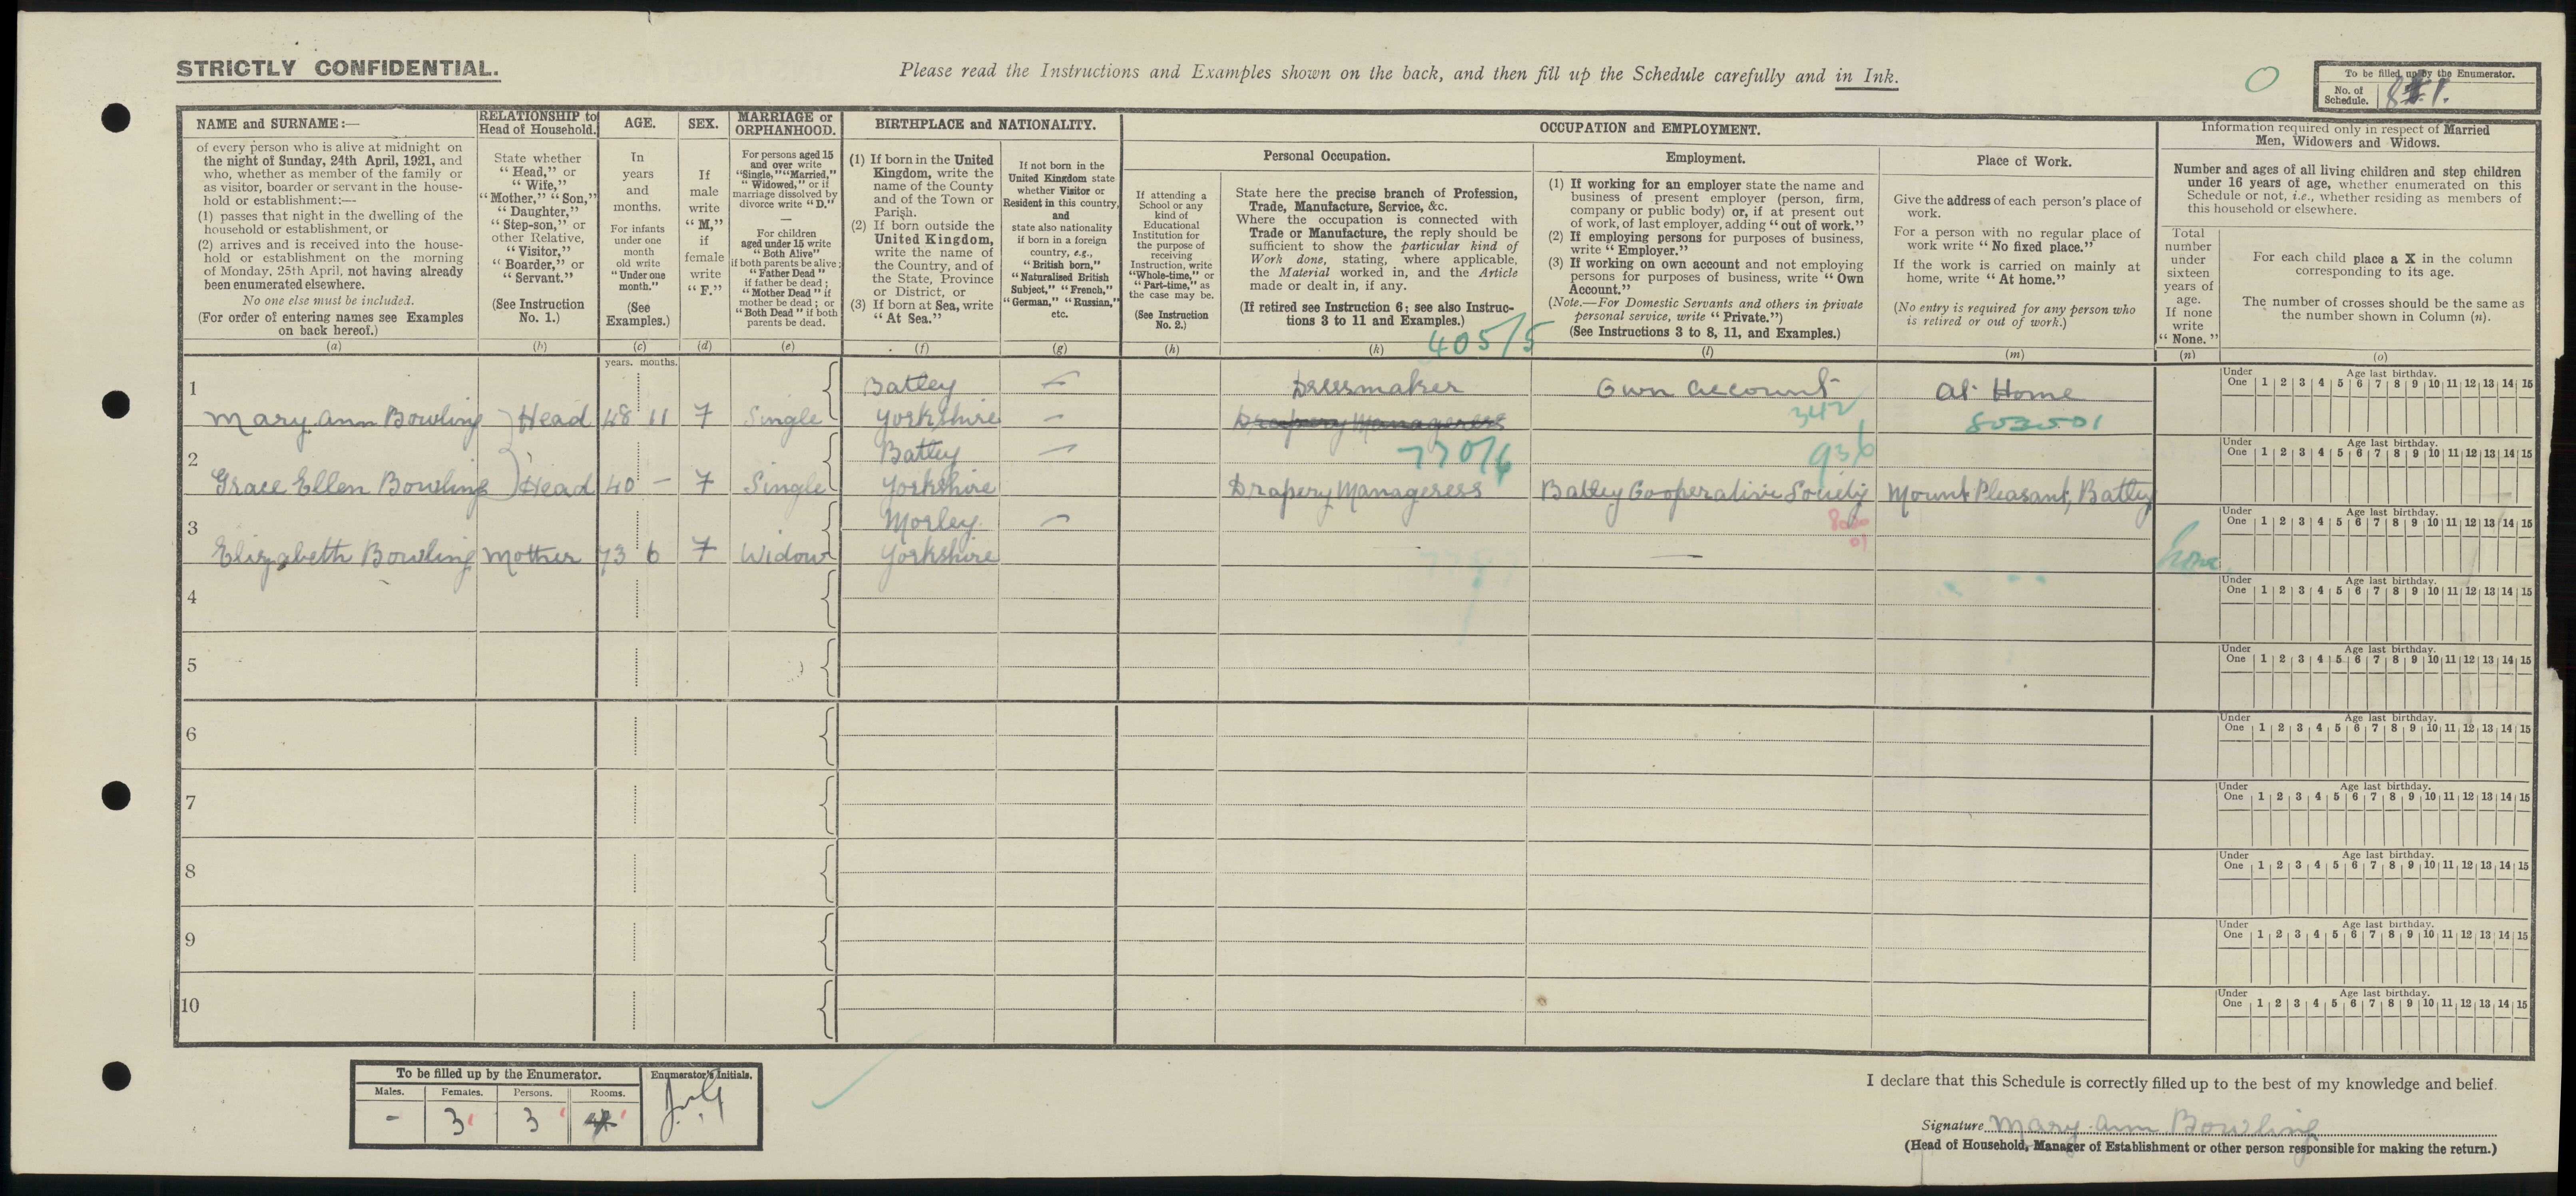 STRICTLY CONFIDENTIAL.
Please read the Instructions and Examples shown on the back, and then fill up the Schedule carefully and in Ink.
To be filled up by the Enumerator.
No. of Schedule.
NAME and SURNAME:—
of every person who is alive at midnight on
the night of Sunday, 24th April, 1921, and
who, whether as member of the family or
as visitor, boarder or servant in the house-
hold or establishment:—
(1) passes that night in the dwelling of the
household or establishment, or
(2) arrives and is received into the house-
hold or establishment on the morning
of Monday, 25th April, not having already
been enumerated elsewhere.
No one else must be included.
(For order of entering names see Examples
on back hereof.)
(a)
RELATIONSHIP to
Head of Household.
State whether
"Head," or
"Wife,"
"Mother," "Son,"
"Daughter,"
"Step-son," or
other Relative,
"Visitor,"
"Boarder," or
"Servant."
(See Instruction
No. 1.)
(b)
AGE.
In
years
and
months.
For infants
under one
month
old write
"Under one
month."
(See
Examples.)
(c)
SEX.
If
male
write
"M,"
if
female
write
"F."
(d)
MARRIAGE or
ORPHANHOOD.
For persons aged 15
and over write
"Single," "Married,"
"Widowed," or if
marriage dissolved by
divorce write "D."
—
For children
aged under 15 write
"Both Alive"
if both parents be alive;
"Father Dead"
if father be dead;
"Mother Dead" if
mother be dead; or
"Both Dead" if both
parents be dead.
(e)
BIRTHPLACE and NATIONALITY.
(1) If born in the United
Kingdom, write the
name of the County
and of the Town or
Parish.
(2) If born outside the
United Kingdom,
write the name of
the Country, and of
the State, Province
or District, or
(3) If born at Sea, write
"At Sea."
(f)
If not born in the
United Kingdom state
whether Visitor or
Resident in this country,
and
state also nationality
if born in a foreign
country, e.g.,
"British born,"
"Naturalised British
Subject," "French,"
"German," "Russian,"
etc.
(g)
OCCUPATION and EMPLOYMENT.
If attending a
School or any
kind of
Educational
Institution for
the purpose of
receiving
Instruction, write
"Whole-time," or
"Part-time," as
the case may be.
(See Instruction
No. 2.)
(h)
Personal Occupation.
State here the precise branch of Profession,
Trade, Manufacture, Service, &c.
Where the occupation is connected with
Trade or Manufacture, the reply should be
sufficient to show the particular kind of
Work done, stating, where applicable,
the Material worked in, and the Article
made or dealt in, if any.
(If retired see Instruction 6; see also Instruc-
tions 3 to 11 and Examples.)
(k)
405/5
Employment.
(1) If working for an employer state the name and
business of present employer (person, firm,
company or public body) or, if at present out
of work, of last employer, adding "out of work."
(2) If employing persons for purposes of business,
write "Employer."
(3) If working on own account and not employing
persons for purposes of business, write "Own
Account."
(Note.—For Domestic Servants and others in private
personal service, write "Private.")
(See Instructions 3 to 8, 11, and Examples.)
(l)
Place of Work.
Give the address of each person's place of
work.
For a person with no regular place of
work write "No fixed place."
If the work is carried on mainly at
home, write "At home."
(No entry is required for any person who
is retired or out of work.)
(m)
Information required only in respect of Married
Men, Widowers and Widows.
Number and ages of all living children and step children
under 16 years of age, whether enumerated on this
Schedule or not, i.e., whether residing as members of
this household or elsewhere.
Total
number
under
sixteen
years of
age.
If none
write
"None."
(n)
For each child place a X in the column
corresponding to its age.
The number of crosses should be the same as
the number shown in Column (n).
(o)
years. months.
1 Batley Dressmaker Own account At Home
Mary Ann Bowling Head 48 11 F Single Yorkshire Drapery Manageress 342
Under One Age last birthday. 1 2 3 4 5 6 7 8 9 10 11 12 13 14 15
2 Batley 770/6 936
Grace Ellen Bowling Head 40 — F Single Yorkshire Drapery Manageress Batley Cooperative Society Mount Pleasant, Batley
Under One Age last birthday. 1 2 3 4 5 6 7 8 9 10 11 12 13 14 15
3 Morley
Elizabeth Bowling Mother 73 6 F Widow Yorkshire — None
Under One Age last birthday. 1 2 3 4 5 6 7 8 9 10 11 12 13 14 15
4
Under One Age last birthday. 1 2 3 4 5 6 7 8 9 10 11 12 13 14 15
5
Under One Age last birthday. 1 2 3 4 5 6 7 8 9 10 11 12 13 14 15
6
Under One Age last birthday. 1 2 3 4 5 6 7 8 9 10 11 12 13 14 15
7
Under One Age last birthday. 1 2 3 4 5 6 7 8 9 10 11 12 13 14 15
8
Under One Age last birthday. 1 2 3 4 5 6 7 8 9 10 11 12 13 14 15
9
Under One Age last birthday. 1 2 3 4 5 6 7 8 9 10 11 12 13 14 15
10
Under One Age last birthday. 1 2 3 4 5 6 7 8 9 10 11 12 13 14 15
To be filled up by the Enumerator.
Males. Females. Persons. Rooms.
- 3 3
Enumerator's Initials.
I declare that this Schedule is correctly filled up to the best of my knowledge and belief.
Signature Mary Ann Bowling
(Head of Household, Manager of Establishment or other person responsible for making the return.)